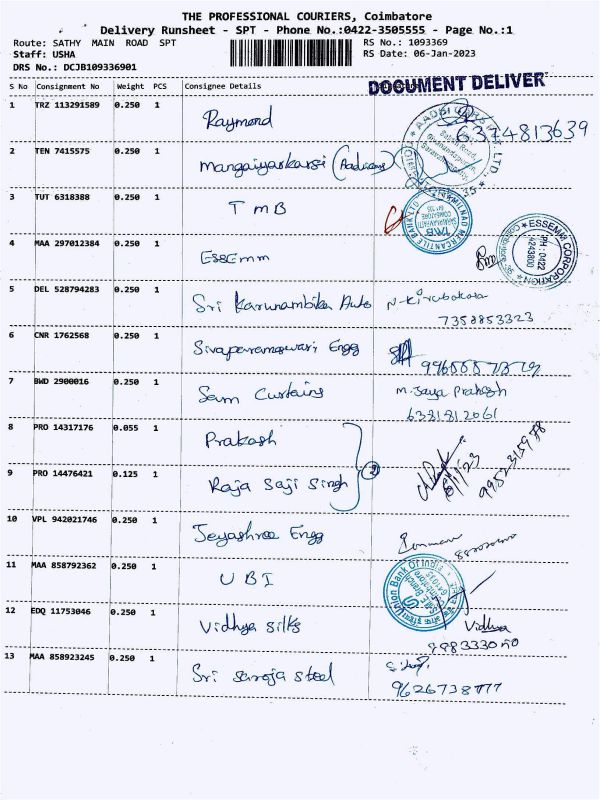 THE PROFESSIONAL COURIERS, Coimbatore
Delivery Runsheet - SPT - Phone No.:0422-3505555 - Page No.:1
Route: SATHY MAIN ROAD SPT RS No.: 1093369
Staff: USHA RS Date: 06-Jan-2023
DRS No.: DCJB109336901
DOCUMENT DELIVER
S No Consignment No Weight PCS Consignee Details
1 TRZ 113291589 0.250 1 Raymond 6374813639
2 TEN 7415575 0.250 1 Mangaiyarkarsi
3 TUT 6318388 0.250 1 TMB
TAMILNAD MERCANTILE BANK LTD
TMB
COIMBATORE
4 MAA 297012384 0.250 1 ESSEmm
ESSEMM CORPORATION
PH: 0422
4243800
5 DEL 528794283 0.250 1 Sri Karunambika Auto
7358853323
6 CNR 1762568 0.250 1 Sivaparameswari Engg
7 BWD 2900016 0.250 1 Sam Curtains M. Jaya Prakash
6381812061
8 PRO 14317176 0.055 1 Prakash
2
9 PRO 14476421 0.125 1 Raja Saji Singh 9952315978
10 VPL 942021746 0.250 1 Jeyashree Engg
11 MAA 858792362 0.250 1 UBI
Union Bank Of India
12 EDQ 11753046 0.250 1 Vidhya Silks Vidhya
13 MAA 858923245 0.250 1 Sri Saroja Steel